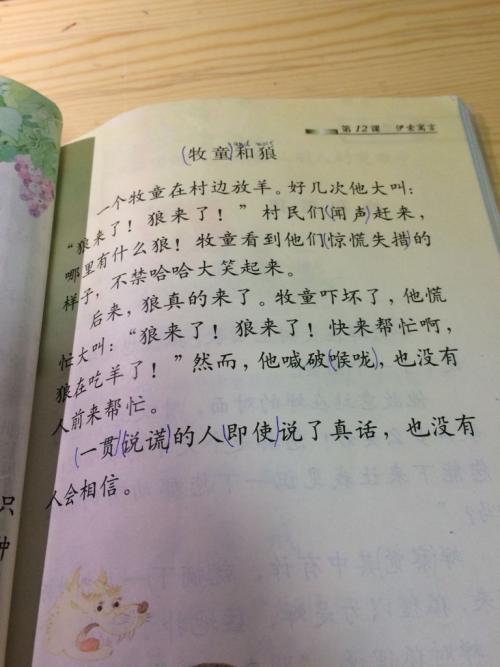 第12课 伊索寓言
牧童和狼
一个牧童在村边放羊。好几次他大叫：
“狼来了！狼来了！”村民们闻声赶来，
哪里有什么狼！牧童看到他们惊慌失措的
样子，不禁哈哈大笑起来。
后来，狼真的来了。牧童吓坏了，他慌
忙大叫：“狼来了！狼来了！快来帮忙啊，
狼在吃羊了！”然而，他喊破喉咙，也没有
人前来帮忙。
一贯说谎的人即使说了真话，也没有
人会相信。
识
种